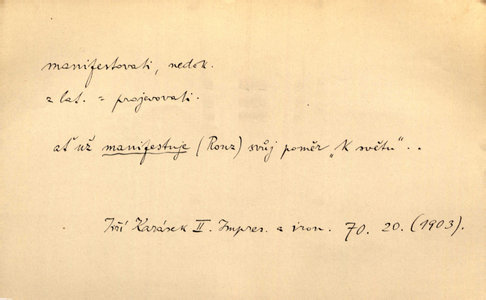 manifestovati, nedok.
z lat. = projevovati.
ať už manifestuje (Konz) svůj poměr „K světu“ . .
Jiří Karásek II. Impres. a iron. 70. 20. (1903).